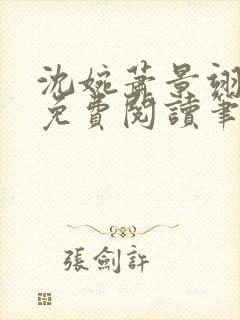 沈婉蕭景翊
免費閱讀筆
張劍許